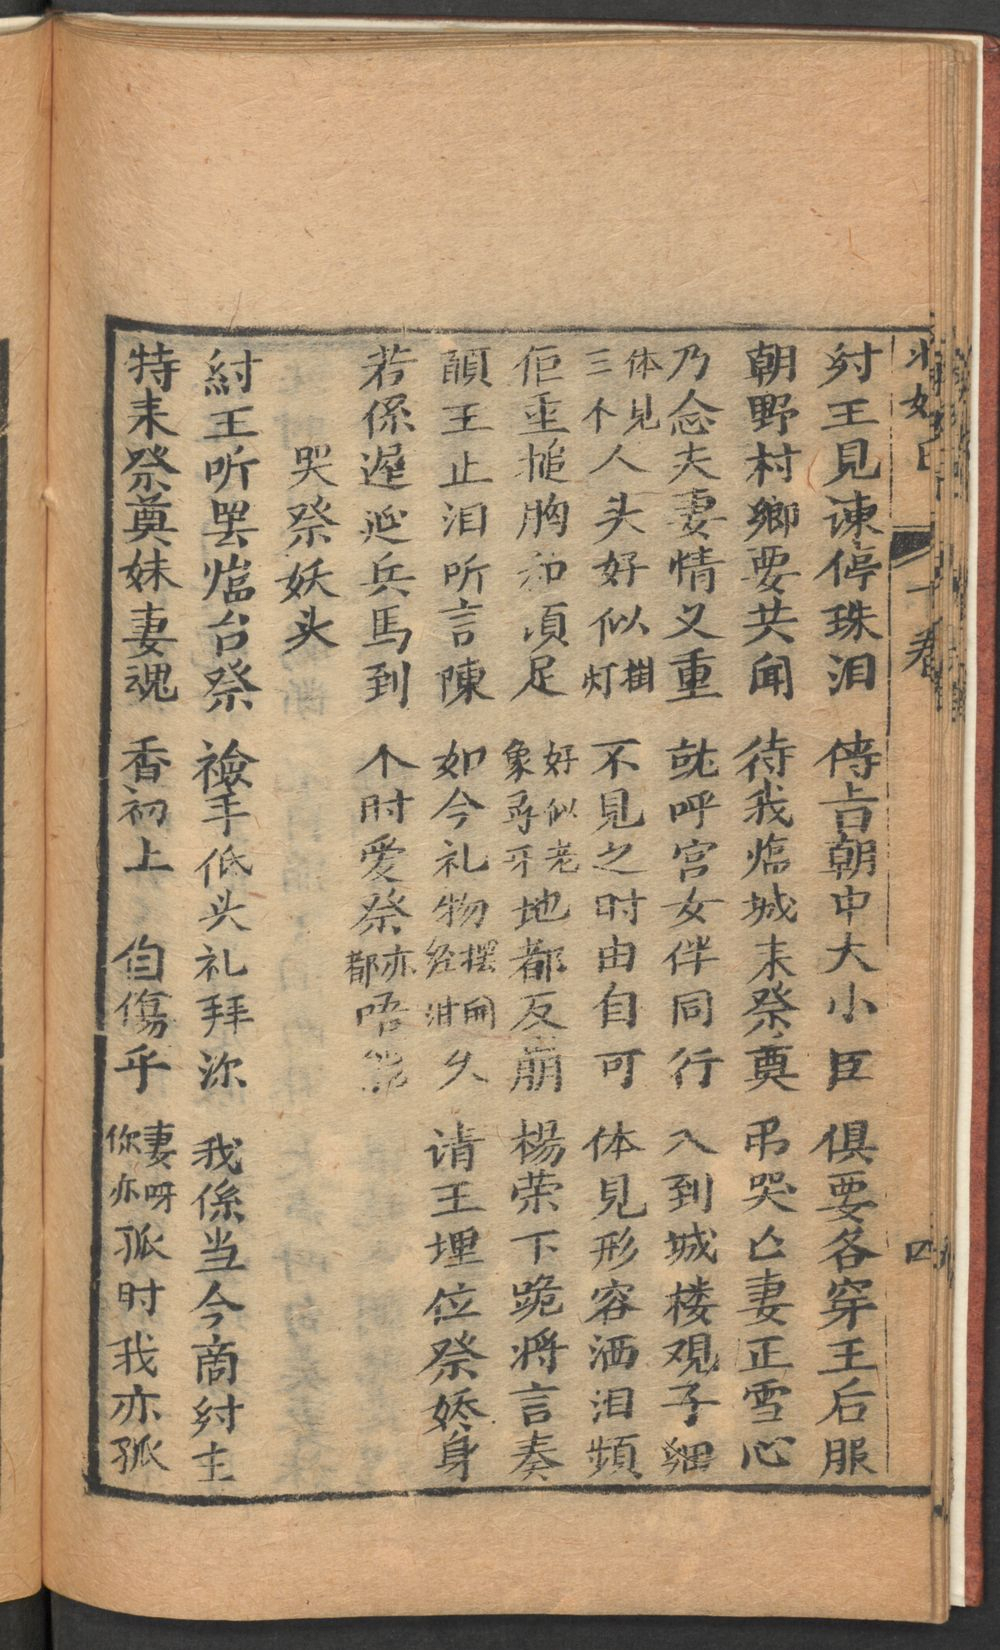 紂王見諫停珠泪　傳旨朝中大小臣　俱要各穿王后服
朝野村鄉要共聞　待我臨城来祭奠　弔哭亡妻正雪心
乃念夫妻情又重　就呼宫女伴同行　入到城楼观子細
体見三个人头好似掛灯　不見之时由自可　体見形容洒泪頻
佢王搥胸和頓足　好似老象尋牙地都反崩　楊荣下跪將言奏
頋王止泪听言陳　如今礼物摆開经already久　请王埋位祭妖身
若係遲延兵馬到　个时爱祭亦都唔能
哭祭妖头
紂王听罢临台祭　撿手低头礼拜深　我係当今商紂主
特来祭奠妹妻魂　香初上　自傷乎　妻呀你亦孤时我亦孤
十卷
四